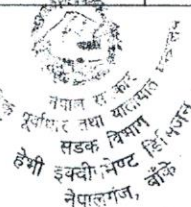 नेपाल सरकार
पूर्वाधार तथा यातायात
सडक विभाग
हेभी इक्वीपमेण्ट डिभिजन
नेपालगंज, बाँके